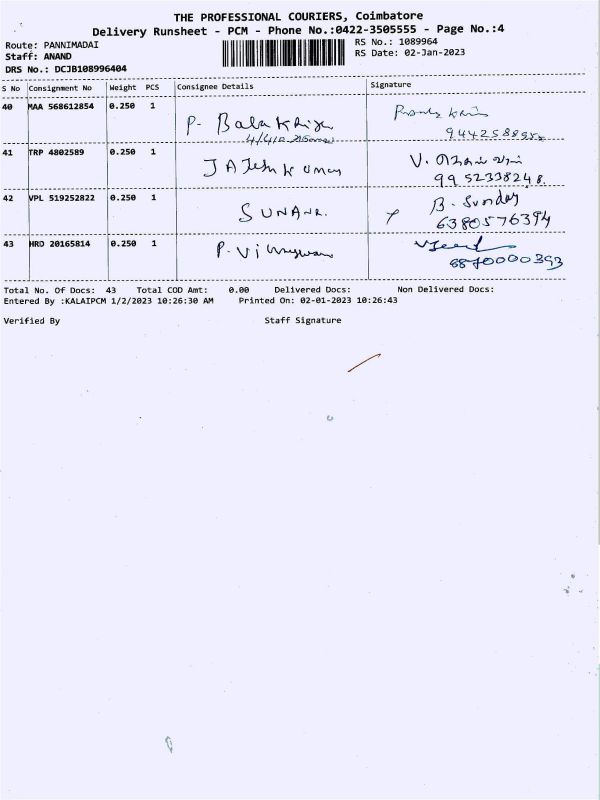 THE PROFESSIONAL COURIERS, Coimbatore
Delivery Runsheet - PCM - Phone No.:0422-3505555 - Page No.:4
Route: PANNIMADAI
RS No.: 1089964
Staff: ANAND
RS Date: 02-Jan-2023
DRS No.: DCJB108996404
S No Consignment No Weight PCS Consignee Details Signature
40 MAA 568612854 0.250 1
P. Bala
41 TRP 4802589 0.250 1
V.
9952338248.
42 VPL 519252822 0.250 1
B. Sunday
6380576394
43 HRD 20165814 0.250 1
8870000393
Total No. Of Docs: 43 Total COD Amt: 0.00 Delivered Docs: Non Delivered Docs:
Entered By :KALAIPCM 1/2/2023 10:26:30 AM Printed On: 02-01-2023 10:26:43
Verified By Staff Signature